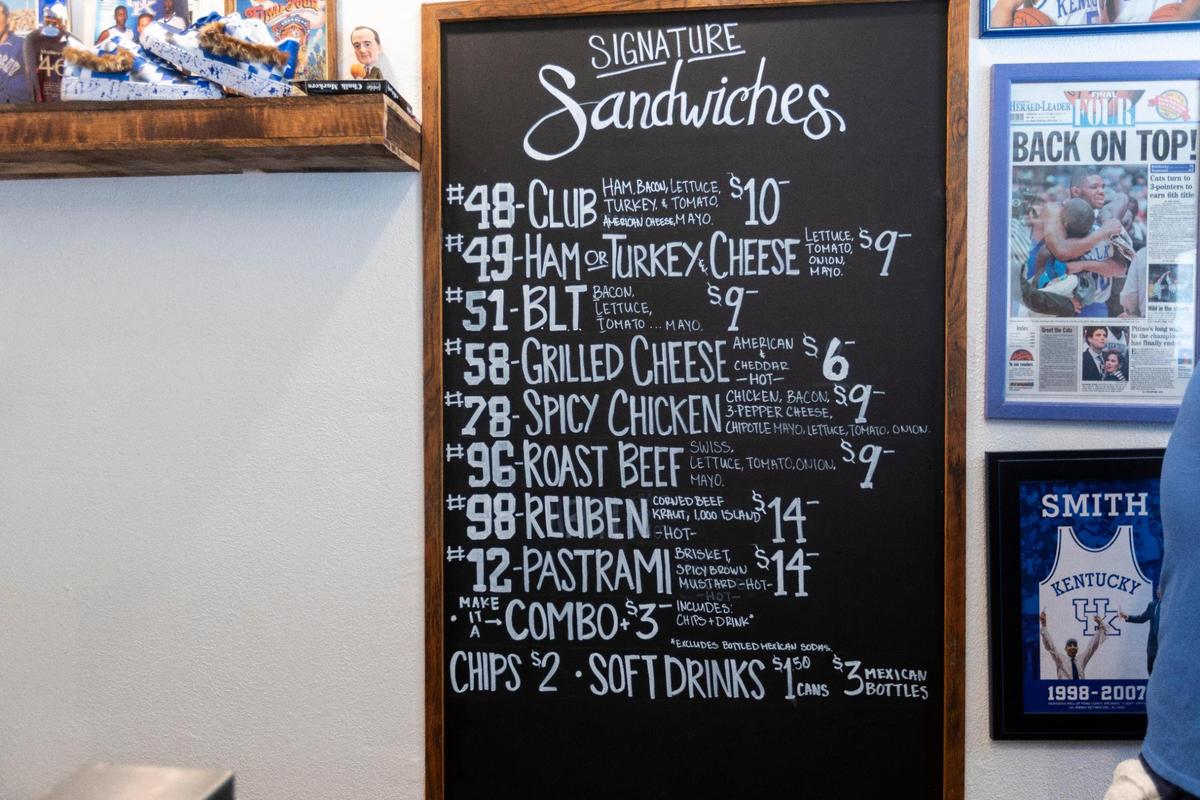 SIGNATURE
Sandwiches
#48-CLUB HAM, BACON, LETTUCE, TURKEY, & TOMATO, AMERICAN CHEESE, MAYO. $10-
#49-HAM OR TURKEY & CHEESE LETTUCE, TOMATO, ONION, MAYO. $9-
#51-BLT BACON, LETTUCE, TOMATO...MAYO. $9-
#58-GRILLED CHEESE AMERICAN & CHEDDAR -HOT- $6-
#78-SPICY CHICKEN CHICKEN, BACON, 3-PEPPER CHEESE, CHIPOTLE MAYO, LETTUCE, TOMATO, ONION. $9-
#96-ROAST BEEF SWISS, LETTUCE, TOMATO, ONION, MAYO. $9-
#98-REUBEN CORNED BEEF KRAUT, 1,000 ISLAND -HOT- $14-
#12-PASTRAMI BRISKET, SPICY BROWN MUSTARD -HOT- $14-
-HOT-
• MAKE IT A → COMBO +$3- INCLUDES: CHIPS + DRINK*
*EXCLUDES BOTTLED MEXICAN SODAS.
CHIPS $2 • SOFT DRINKS $1.50 CANS $3 MEXICAN BOTTLES
Chalk Markers
KENTUCKY
HERALD-LEADER
FINAL
FOUR
BACK ON TOP!
Cats turn to
3-pointers to
earn 6th title
Index
Greet the Cats
Pitino's long
to the
has finally
SMITH
KENTUCKY
UK
1998-2007